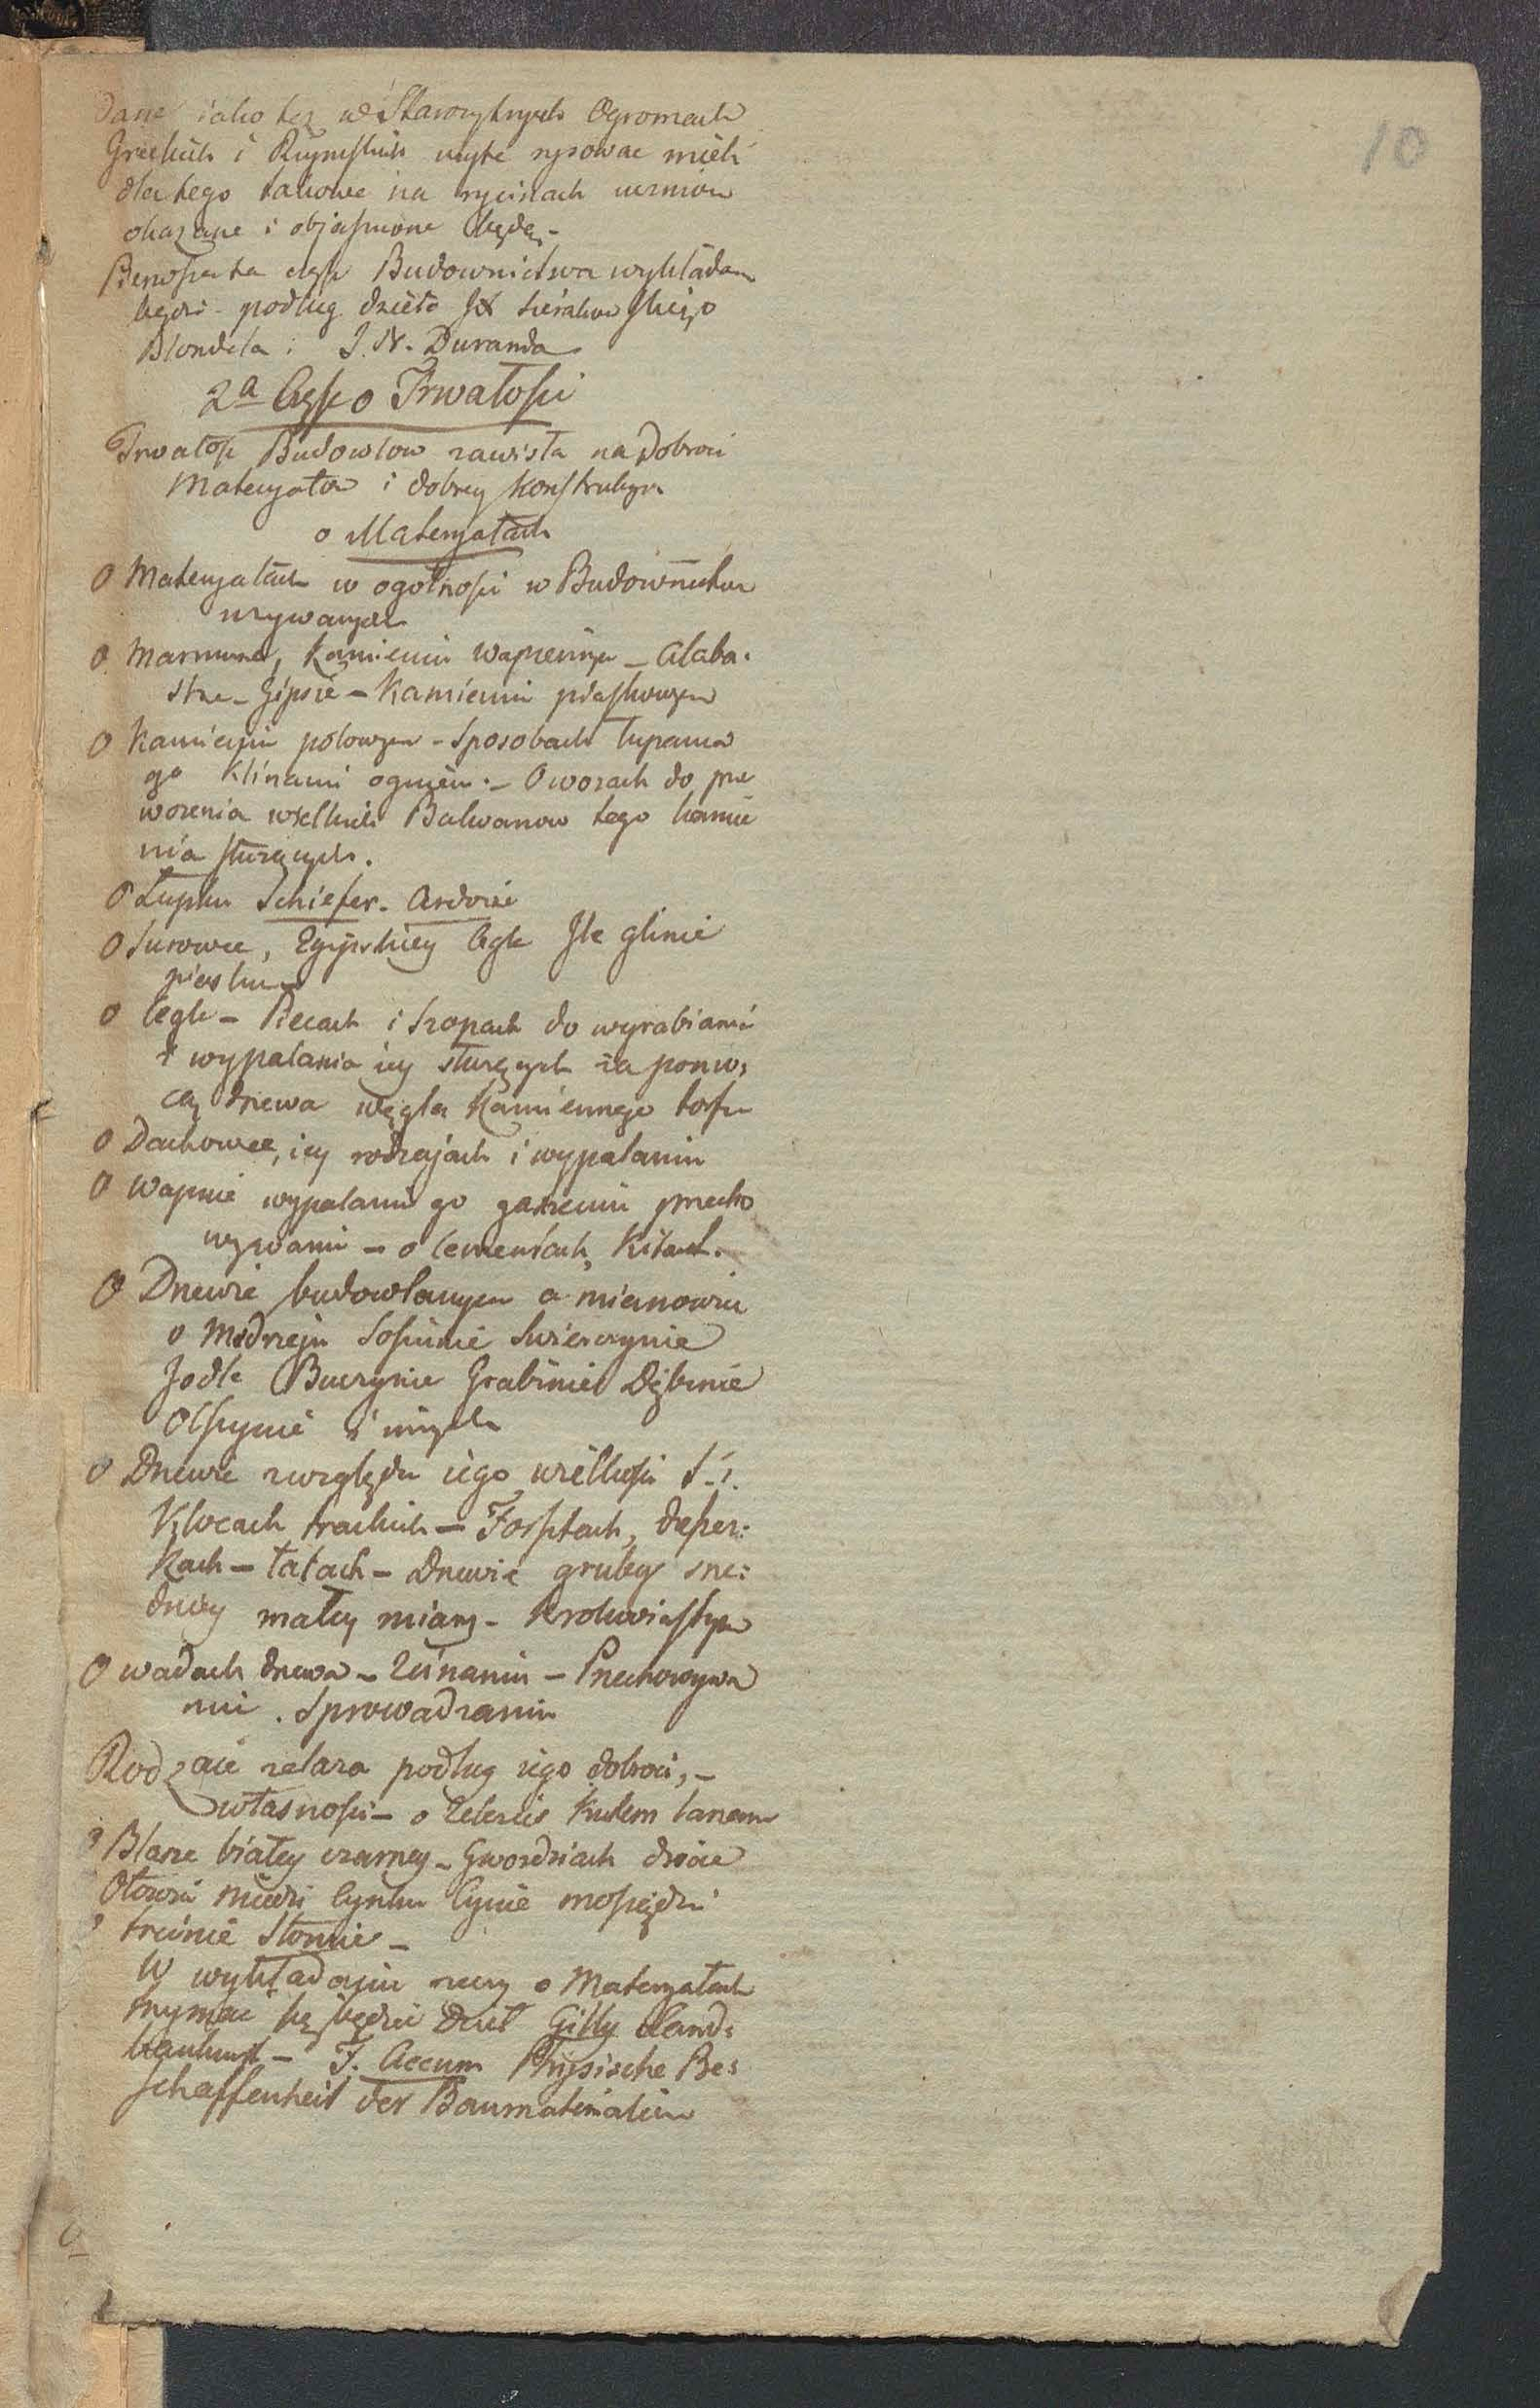 10
dane iako też w Starożytnych Ogromach
Greckich i Rzymskich użyte rysować mieli
dla tego takowe na rycinach uczniom
okazane i objasnione będą.-
Pierwsza ta część Budownictwa wykładana
będzie podług dzieła JX Sierakowskiego
Blondela i J. N. Duranda
2a Część o Trwałości
Trwałość Budowlow zawisła na Dobroci
Materyałow i dobrey Konstrukcyi
o Materyałach
O Materyałach w ogólności w Budownictwie
używanych
O Marmurze, Kamieniu wapiennym – Alaba-
strze – Gipsie – Kamieniu piaskowym
O Kamieniu polowym – Sposobach łupania
go Klinami ogniem. – O wozach do prze
wożenia wielkich Bałwanow tego kamie
nia służących.
O Łupku Schiefer. Ardoise
O Surowce, Egipskiey Cegle Jle glinie
piasku
O Cegle – Piecach i Szopach do wyrabiania
i wypalania iey służących za pomo,
cą drzewa węgla Kamiennego torfu
O Dachowce, iey rodzajach i wypalaniu
O Wapnie wypalaniu go gaszeniu przecho
wywaniu – o Cementach, Kitach.
O Drzewie budowlanym a mianowicie
o Modrzeju Sosninie Swierczynie
Jodle Buczynie Grabinie Dębinie
Olszynie i innych
O Drzewie względu iego wielkości t. i.
Klocach trackich – Forsztach, deszcz:
kach – łatach – Drzewie grubey sre:
dniey małey miary – Krokwiastym
O wadach drzewa – Zcinaniu – Przechowywa
niu. Sprowadzaniu
Rodzaie żelaza podług iego dobroci, –
własności – o Żelezie Kutem lanem
O Blasze białey czarney – Gwozdziach drócie
Ołowiu Miedzi Cynku Cynie mosiądzu
O trcinie Słomie –
W wykładaniu rzeczy o Materyałach
trzymać się będzie Dzieł Gilly Land:
baukunst – F. Accum Physische Be:
schaffenheit der Baumaterialien